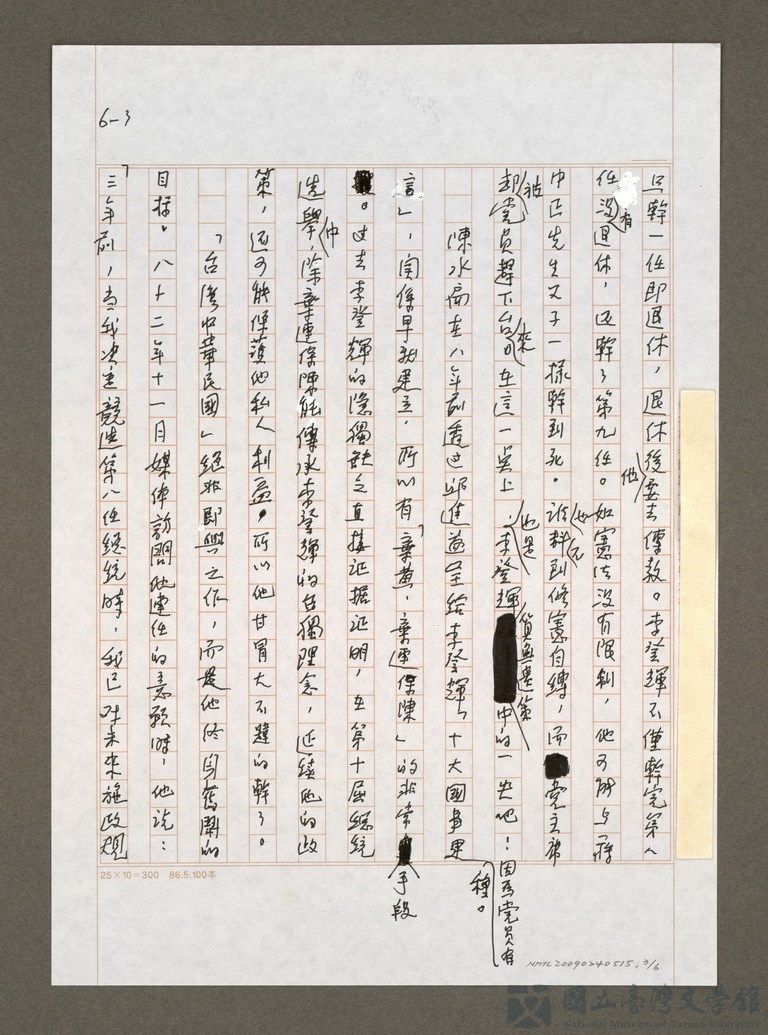 6-3
只幹一任即退休，退休後他要去傳教。李登輝不僅幹完第八
任沒有退休，還幹了第九任。如憲法沒有限制，他可能与蔣
中正先生父子一樣幹到死。誰料到他不修憲自縛，而党主席
却被党員趕下台來。在這一奌上，也是李登輝算無遺策中的一失吧！因為党員有種。
陳水扁在八年前透过邱進益呈給李登輝「十大國事建
言」，実係早就建立，所以有「棄黃，棄連保陳」的非常手段
。过去李登輝的隱獨缺乏直接証据証明，在第十屆總統
選舉中，除棄連保陳能傳承李登輝的台獨理念，延續他的政
策，还可能保護他私人利益，所以他甘冒大不韙的幹了。
「台灣中華民國」絕非即興之作，而是他終身奮鬪的
目標。八十二年十一月媒体訪問他連任的意願時，他說：
「三年前，當我決定競選第八任總統時，我已對未來施政規
25×10=300 86.5.100本
NMTL20090240515, 3/6
國立臺灣文學館
National Museum of Taiwan Literature